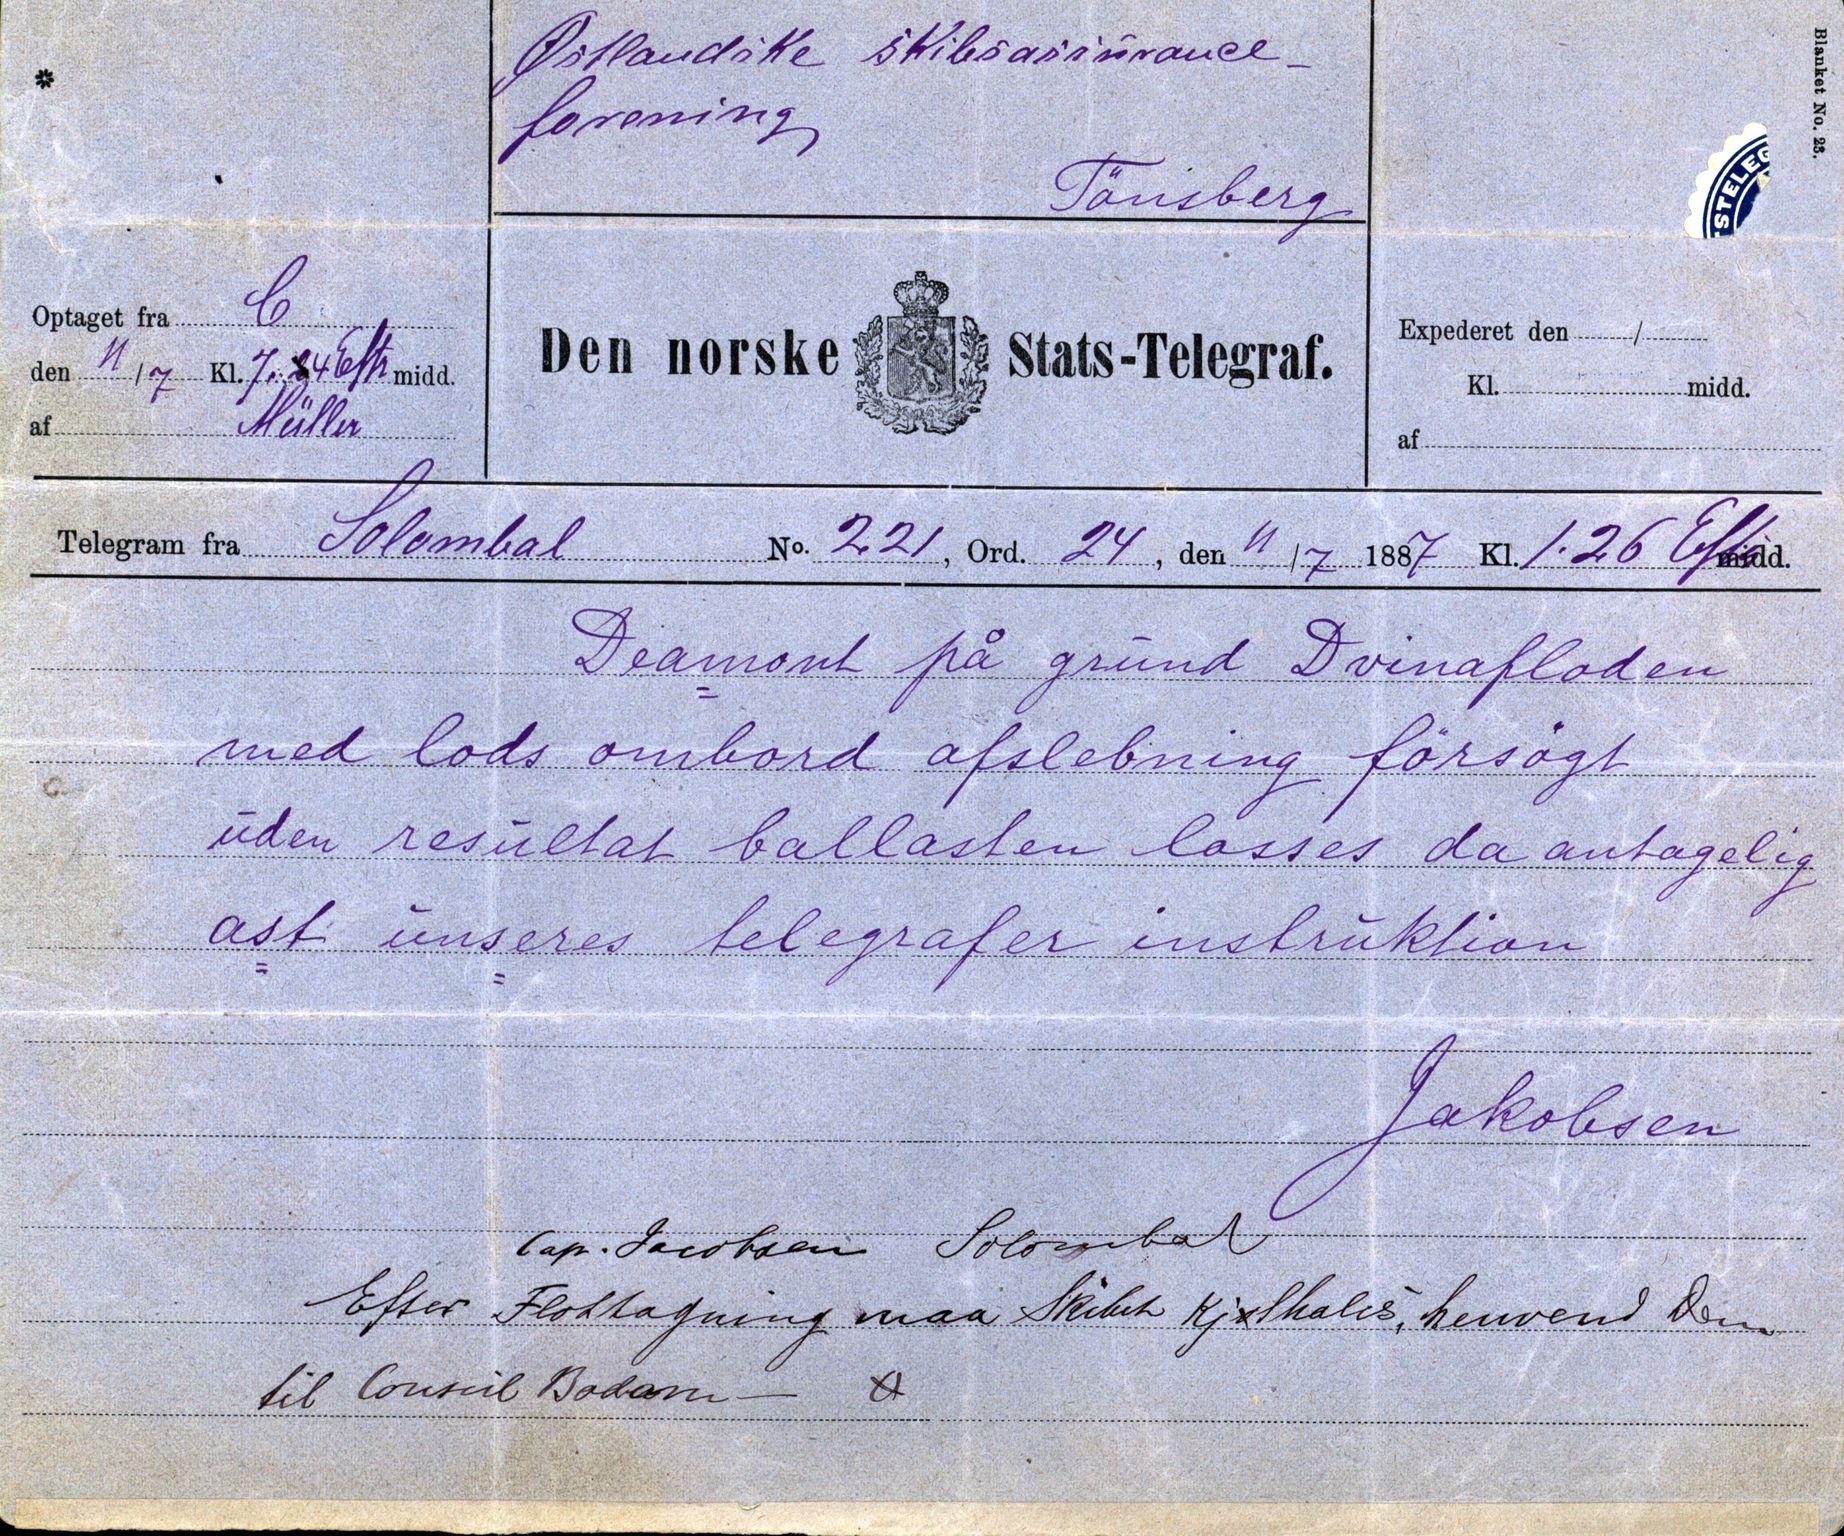 Østlandske skibsassurance-
forening
Tönsberg
Blanket No. 23.
STELEG
Optaget fra C
den 11/7 Kl. 7.24 Eft midd.
af Müller
Den norske Stats-Telegraf.
Expederet den /
Kl. midd.
af
Telegram fra Solombal No. 221, Ord. 24, den 11/7 1887 Kl. 1.26 Eft midd.
Deamont på grund Dvinafloden
med lods ombord afslebning försögt
uden resultat ballasten losses da antagelig
ast unseres telegrafer instruktion
Jakobsen
Cap. Jacobsen Solombal
Efter Flottagning maa Skibet Kjølhales, henvend Dem
til Consul Bodom —